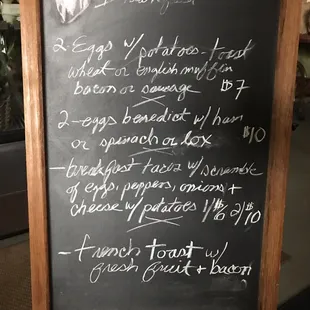 2-Eggs w/potatoes-toast
wheat or English muffin
bacon or sausage $7
2-eggs benedict w/ ham
or spinach or lox $10
-breakfast tacos w/scramble
of eggs, peppers, onions +
cheese w/potatoes 1/$6 2/$10
-french toast w/
fresh fruit + bacon